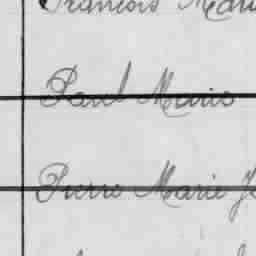 François Marie
Paul Marie
Pierre Marie J